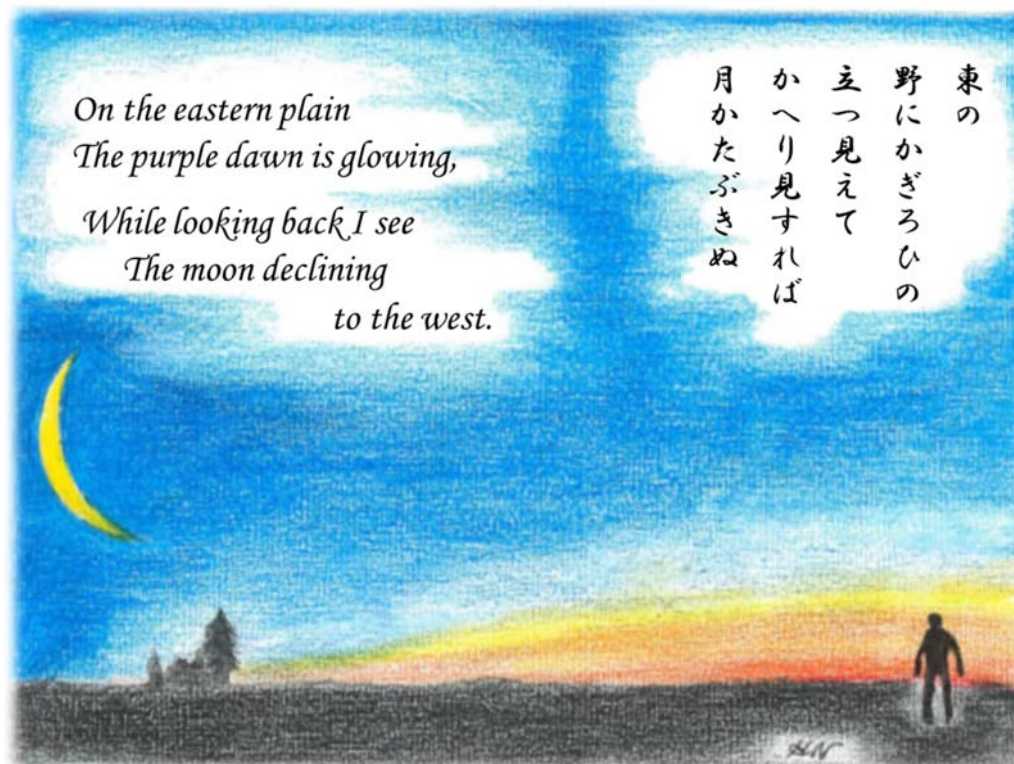 On the eastern plain
The purple dawn is glowing,
While looking back I see
The moon declining
to the west.
東の
野にかぎろひの
立つ見えて
かへり見すれば
月かたぶきぬ